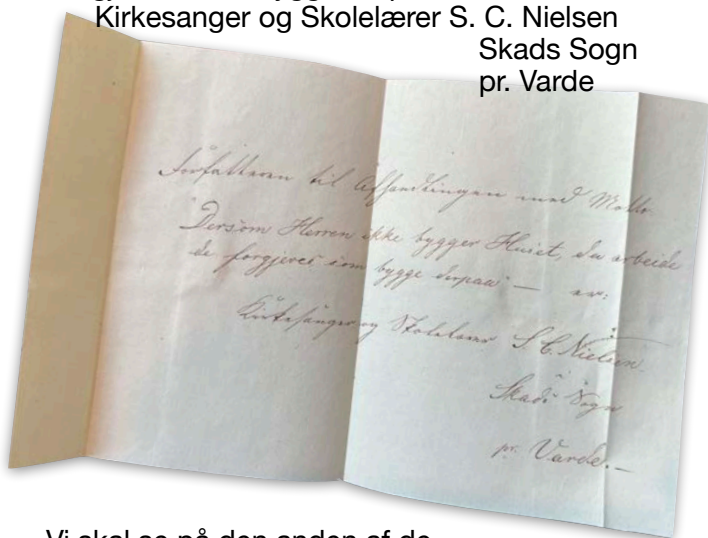 Kirkesanger og Skolelærer S. C. Nielsen
Skads Sogn
pr. Varde
Forfatteren til Afhandlingen med Motto
"Dersom Herren ikke bygger Huset, da arbeide
de forgjeves som bygge derpaa" — er:
Kirkesanger og Skolelærer S. C. Nielsen
Skads Sogn
pr. Varde.—
Vi skal se på den anden af de